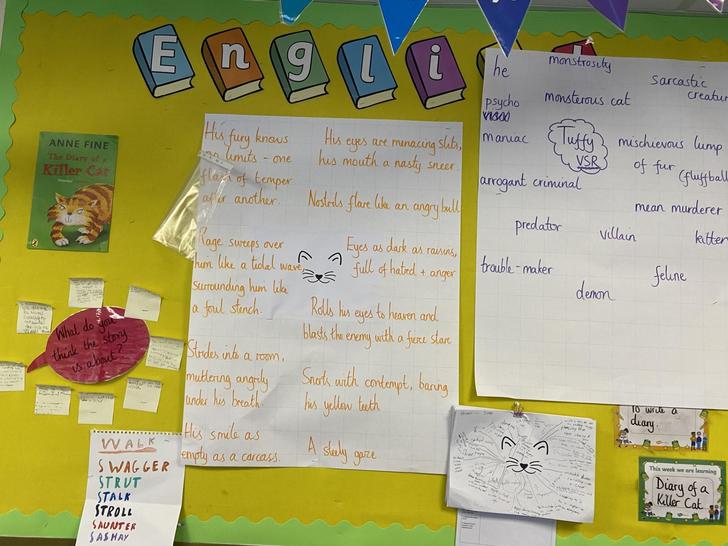 Engli
ANNE FINE
The Diary of a
Killer Cat
His fury knows
limits - one
flash of temper
after another.
Rage sweeps over
him like a tidal wave
surrounding him like
a foul stench.
Strides into a room,
muttering angrily
under his breath.
His smile as
empty as a carcass.
His eyes are menacing slits,
his mouth a nasty sneer.
Nostrils flare like an angry bull
Eyes as dark as raisins,
full of hatred + anger
Rolls his eyes to heaven and
blasts the enemy with a fierce stare
Snorts with contempt, baring
his yellow teeth
A steely gaze.
he
monstrosity
Sarcastic
creatur
psycho
monsterous cat
maniac
Tuffy
VSR
mischievous lump
of fur (fluffball
arrogant criminal
mean murderer
predator
villain
kitten
trouble-maker
feline
demon
What do you
think the story
is about?
WALK
SWAGGER
STRUT
STALK
STROLL
SAUNTER
SASHAY
To write a
diary.
This week we are learning
Diary of a
Killer Cat